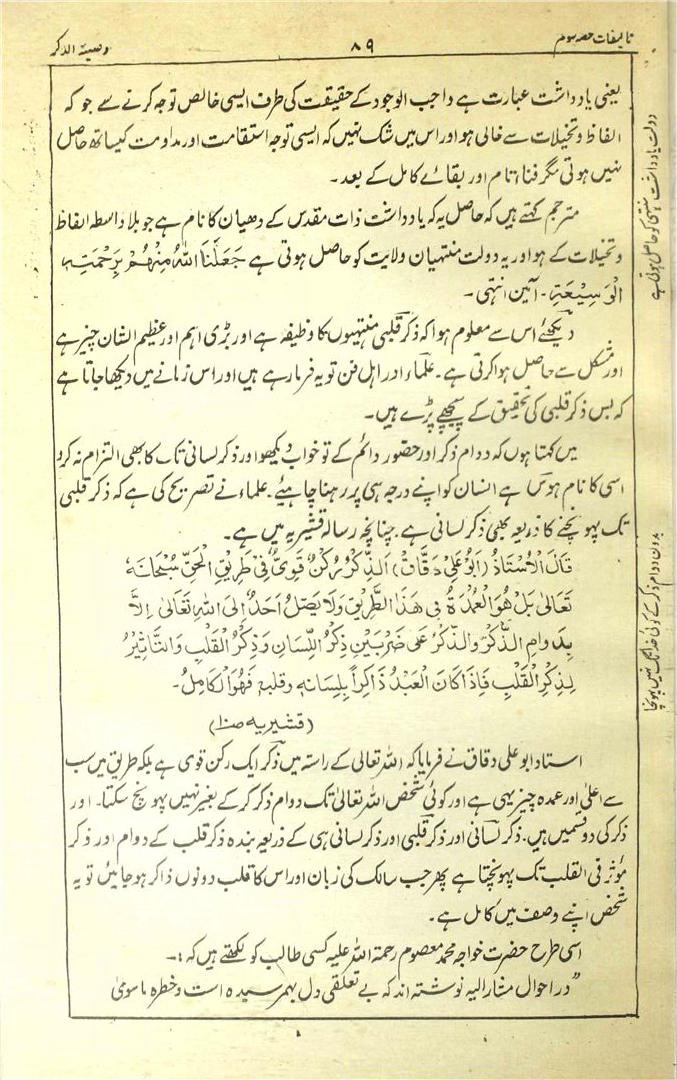 تالیفات حصہ سوم
۸۹
وصیۃ الذکر
یعنی یادداشت عبارت ہے واجب الوجود کے حقیقت کی طرف ایسی خالص توجہ کرنے سے جو کہ
الفاظ وتخیلات سے خالی ہو اور اس میں شک نہیں کہ ایسی توجہ استقامت اور مداومت کیساتھ حاصل
نہیں ہوتی مگر فناء تام اور بقائے کامل کے بعد۔
مترجم کہتے ہیں کہ حاصل یہ کہ یادداشت ذات مقدس کے دھیان کا نام ہے جو بلا واسطہ الفاظ
وتخیلات کے ہو اور یہ دولت منتہیان ولایت کو حاصل ہوتی ہے جَعَلَنَا اللّٰہُ مِنْھُمْ بِرَحْمَتِہٖ
الْوَسِیْعَۃِ۔ آمین انتہی۔
دیکھئے اس سے معلوم ہوا کہ ذکر قلبی منتہیوں کا وظیفہ ہے اور بڑی اہم اور عظیم الشان چیز ہے
اور مشکل سے حاصل ہوا کرتی ہے۔ علماء اور اہل فن تو یہ فرمارہے ہیں اور اس زمانے میں دیکھا جاتا ہے
کہ بس ذکر قلبی کی تحقیق کے پیچھے پڑے ہیں۔
میں کہتا ہوں کہ دوام ذکر اور حضور دائم کے تو خواب دیکھو اور ذکر لسانی تک کا بھی التزام نہ کرو
اسی کا نام ہوس ہے انسان کو اپنے درجہ ہی پر رہنا چاہیئے۔ علماء نے تصریح کی ہے کہ ذکر قلبی
تک پہونچنے کا ذریعہ بھی ذکر لسانی ہے۔ چنانچہ رسالہ قشیریہ میں ہے۔
قَالَ الْاُسْتَاذُ (اَبُوْ عَلِیْ دَقَّاقْ) اَلذِّکْرُ رُکْنٌ قَوِیٌّ فِیْ طَرِیْقِ الْحَقِّ سُبْحَانَہٗ
تَعَالیٰ بَلْ ھُوَ الْعُمْدَۃُ فِیْ ھَذَا الطَّرِیْقِ وَلَا یَصِلُ اَحَدٌ اِلَی اللّٰہِ تَعَالیٰ اِلَّا
بِدَوَامِ الذِّکْرِ وَالذِّکْرُ عَلیٰ ضَرْبَیْنِ ذِکْرُ اللِّسَانِ وَذِکْرُ الْقَلْبِ وَالتَّاثِیْرُ
لِذِکْرِ الْقَلْبِ فَاِذَا کَانَ الْعَبْدُ ذَاکِراً بِلِسَانِہٖ وقلبہٖ فَھُوَ الْکَامِلُ۔
(قشیریہ صنا)
استاد ابو علی دقاق نے فرمایا کہ اللہ تعالی کے راستہ میں ذکر ایک رکن قوی ہے بلکہ طریق میں سب
سے اعلیٰ اور عمدہ چیز یہی ہے اور کوئی شخص اللہ تعالیٰ تک دوام ذکر کرکے بغیر نہیں پہونچ سکتا۔ اور
ذکر کی دو قسمیں ہیں۔ ذکر لسانی اور ذکر قلبی اور ذکر لسانی ہی کے ذریعہ بندہ ذکر قلب کے دوام اور ذکر
مؤثر فی القلب تک پہونچتا ہے پھر جب سالک کی زبان اور اس کا قلب دونوں ذاکر ہوجائیں تو یہ
شخص اپنے وصف میں کامل ہے۔
اسی طرح حضرت خواجہ محمد معصوم رحمۃ اللہ علیہ کسی طالب کو لکھتے ہیں کہ :۔
"در احوال مشارالیہ نوشتہ اند کہ بے تعلقی دل بہم رسیدہ است وخطرہ ماسویٰ
دولت یادداشت منتہی کو حاصل ہوتی ہے
بدون دوام ذکر کے کوئی خدا تک نہیں پہونچتا